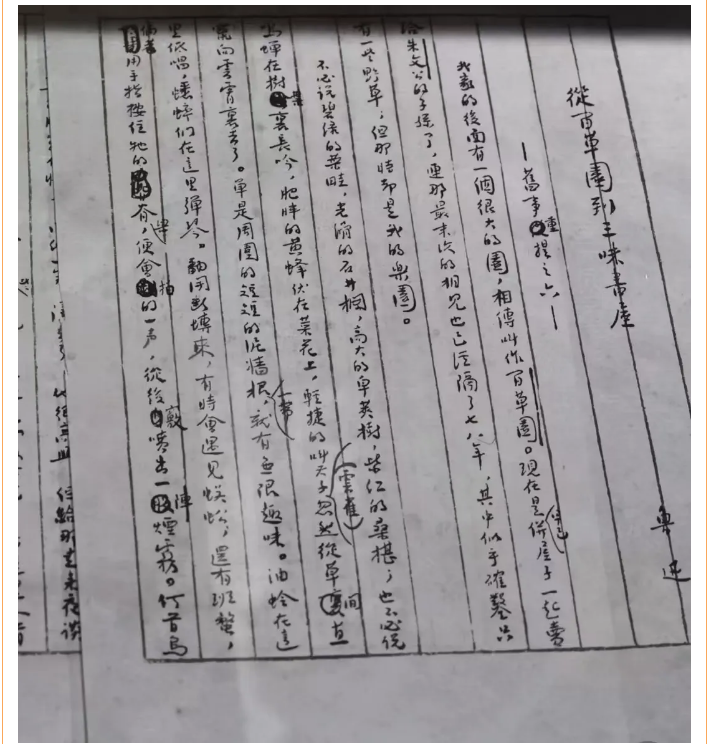 從百草園到三味書屋
魯迅
—舊事重提之六—
我家的後面有一個很大的園,相傳叫作百草園。現在是早已併屋子一起賣
給朱文公的子孫了,連那最末次的相見也已經隔了七八年,其中似乎確鑿只
有一些野草;但那時却是我的樂園。
不必說碧綠的菜畦,光滑的石井欄,高大的皁莢樹,紫红的桑椹;也不必說
鳴蟬在樹葉裏長吟,肥胖的黄蜂伏在菜花上,輕捷的叫天子(雲雀)忽然從草間直
竄向雲霄裏去了。單是周圍的短短的泥牆根一帶,就有無限趣味。油蛉在這
里低唱,蟋蟀們在這里彈琴。翻開斷磚來,有時會遇見蜈蚣;還有班蝥,
倘若用手指按住牠的脊梁,便會拍的一声,從後竅噴出一陣煙霧。何首烏